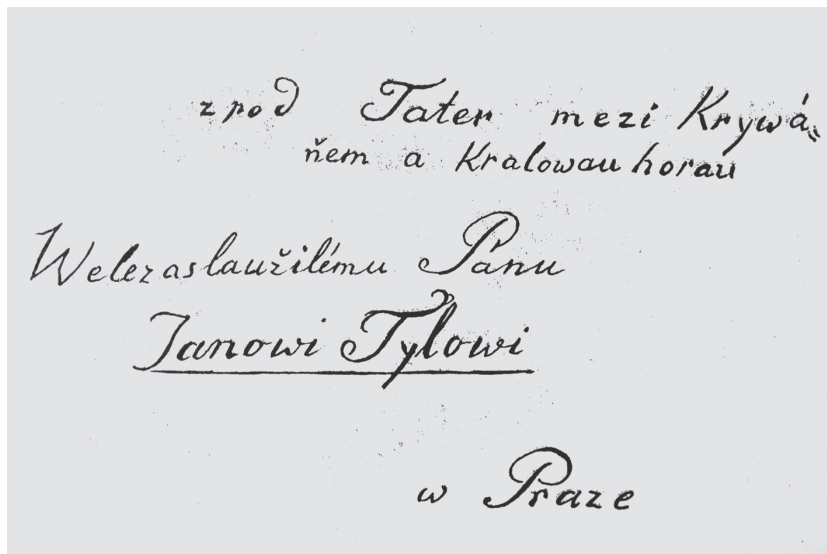 zpod Tater mezi Krywá=
ňem a Kralowau horau
Welezaslaužilému Pánu
Janowi Tylowi
w Praze